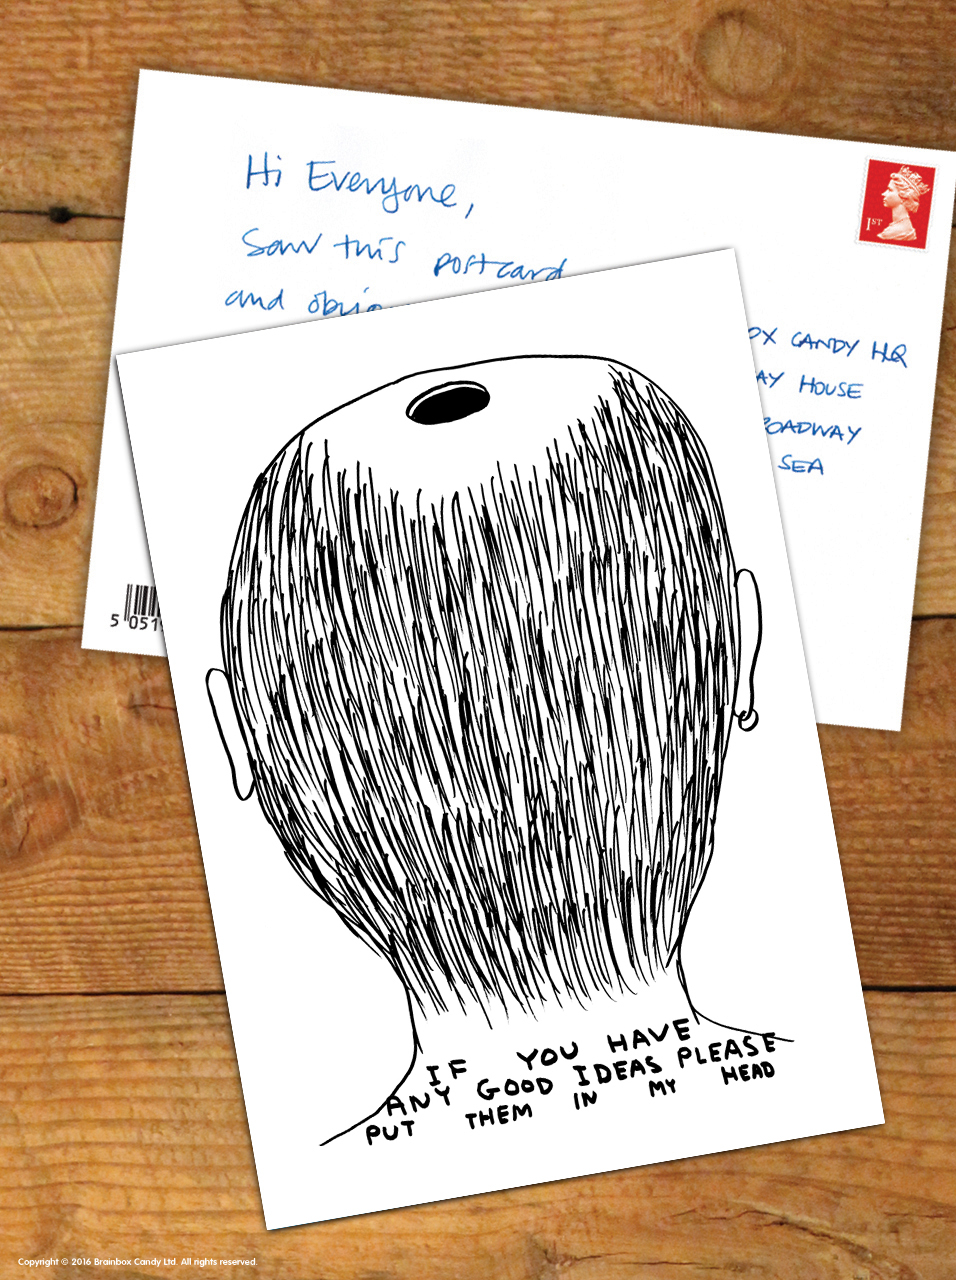 Hi Everyone,
Saw this postcard
and
1ST
CANDY HQ
HOUSE
SEA
5 051
IF YOU HAVE
ANY GOOD IDEAS PLEASE
PUT THEM IN MY HEAD
Copyright © 2016 Brainbox Candy Ltd. All rights reserved.